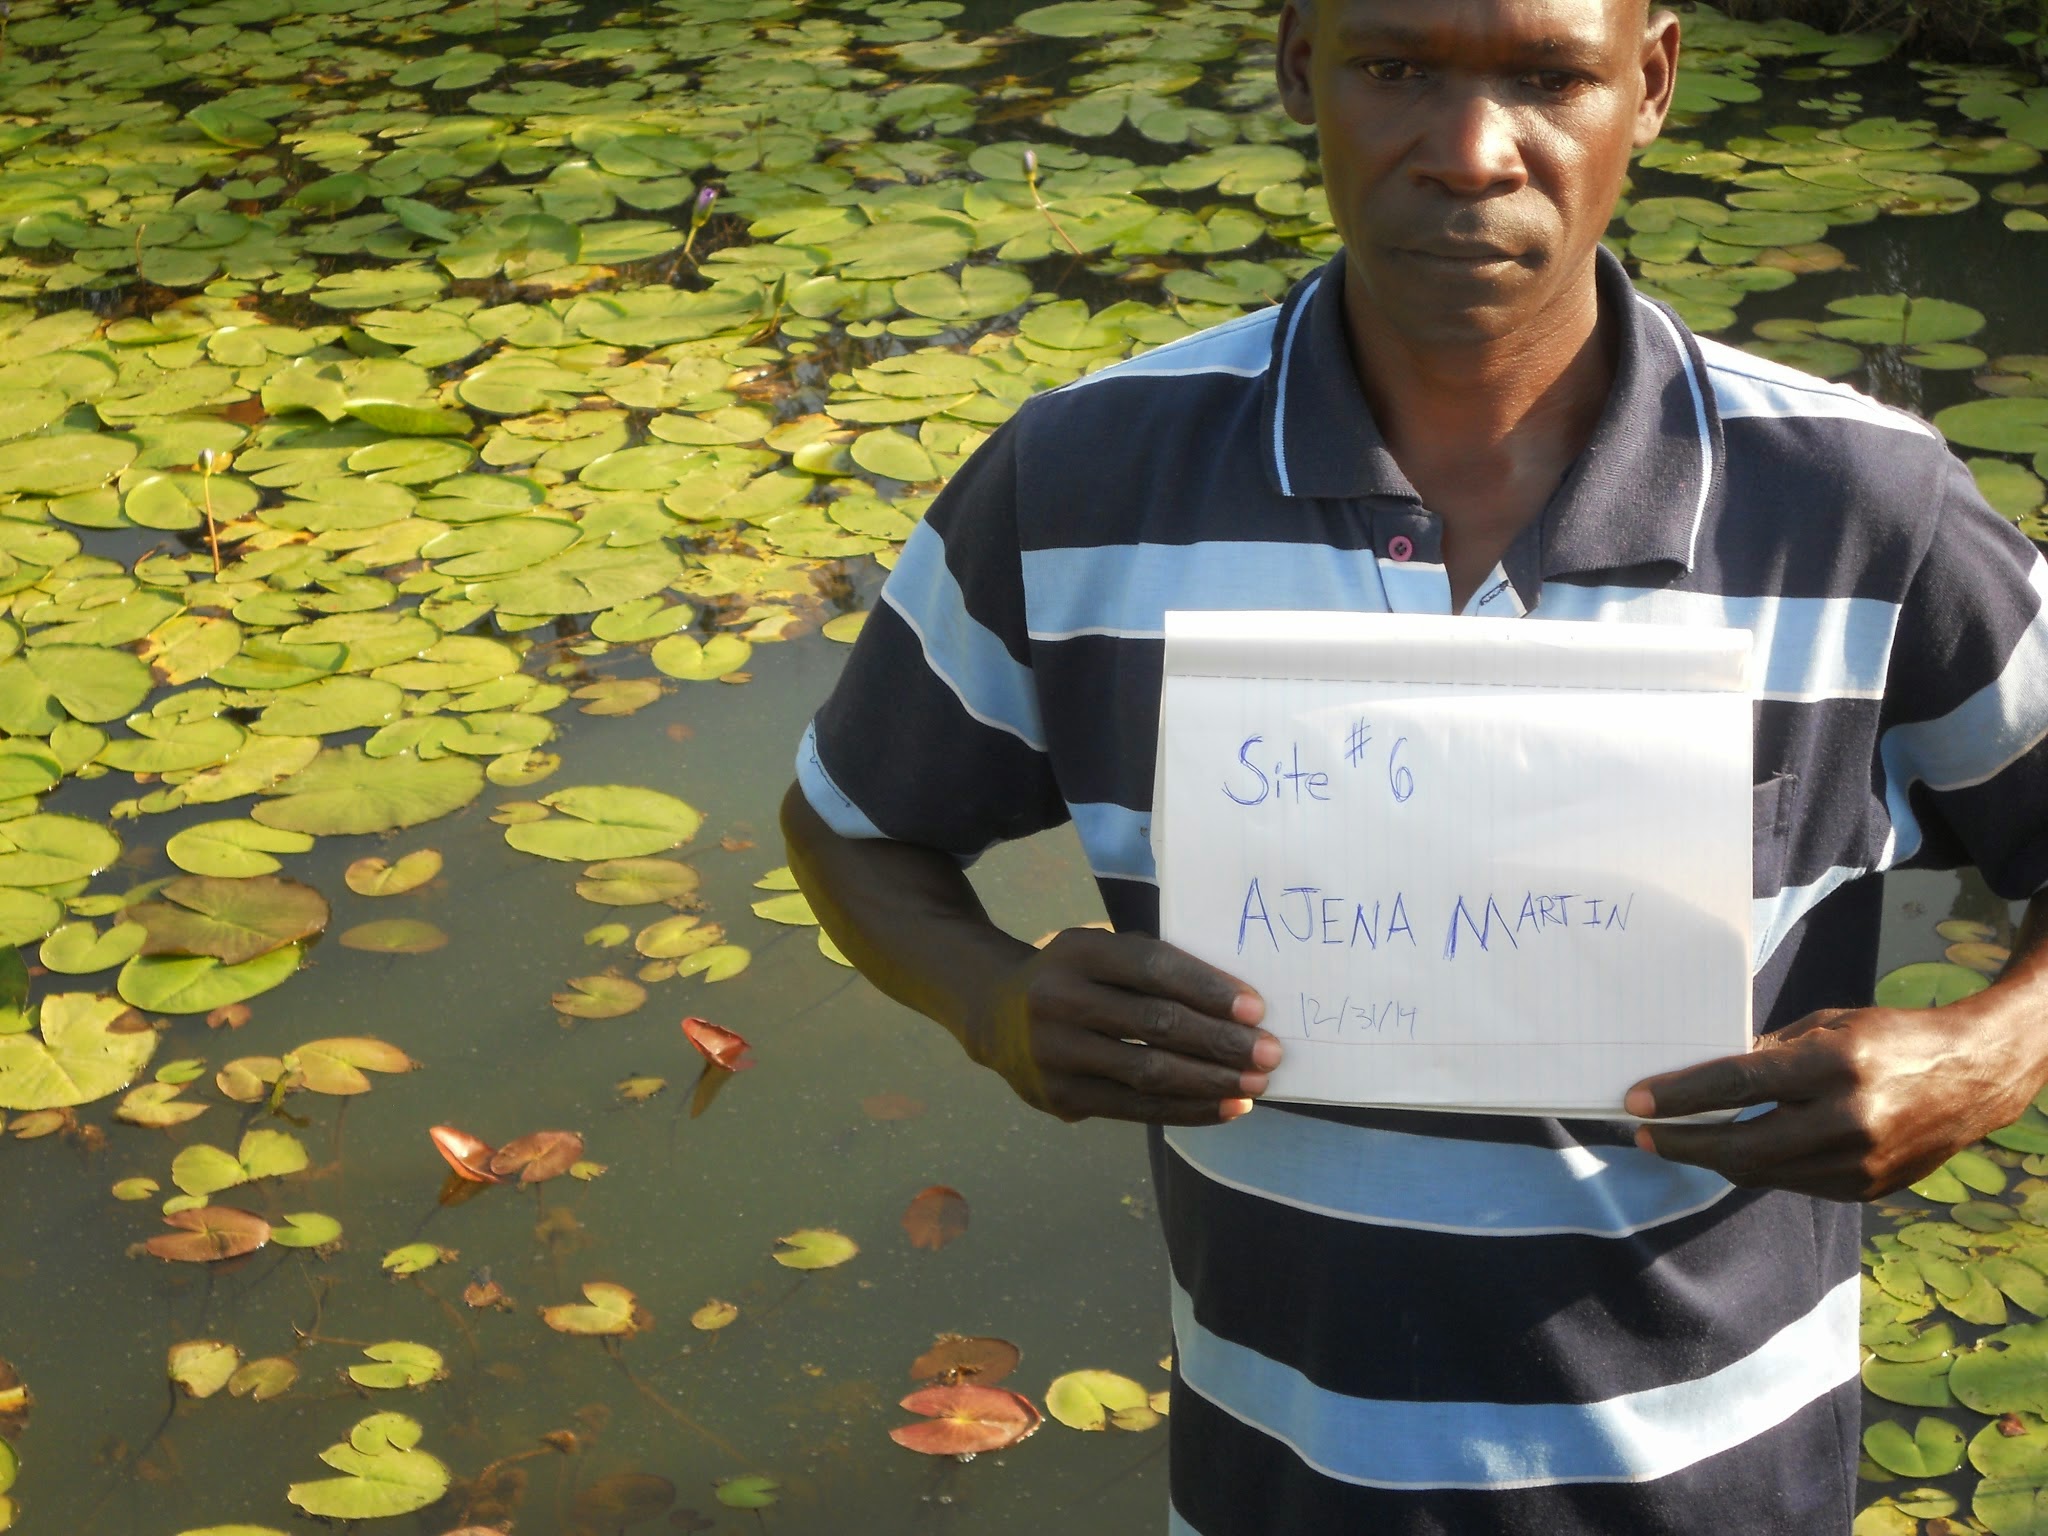 Site # 6
AJENA MARTIN
12/31/14